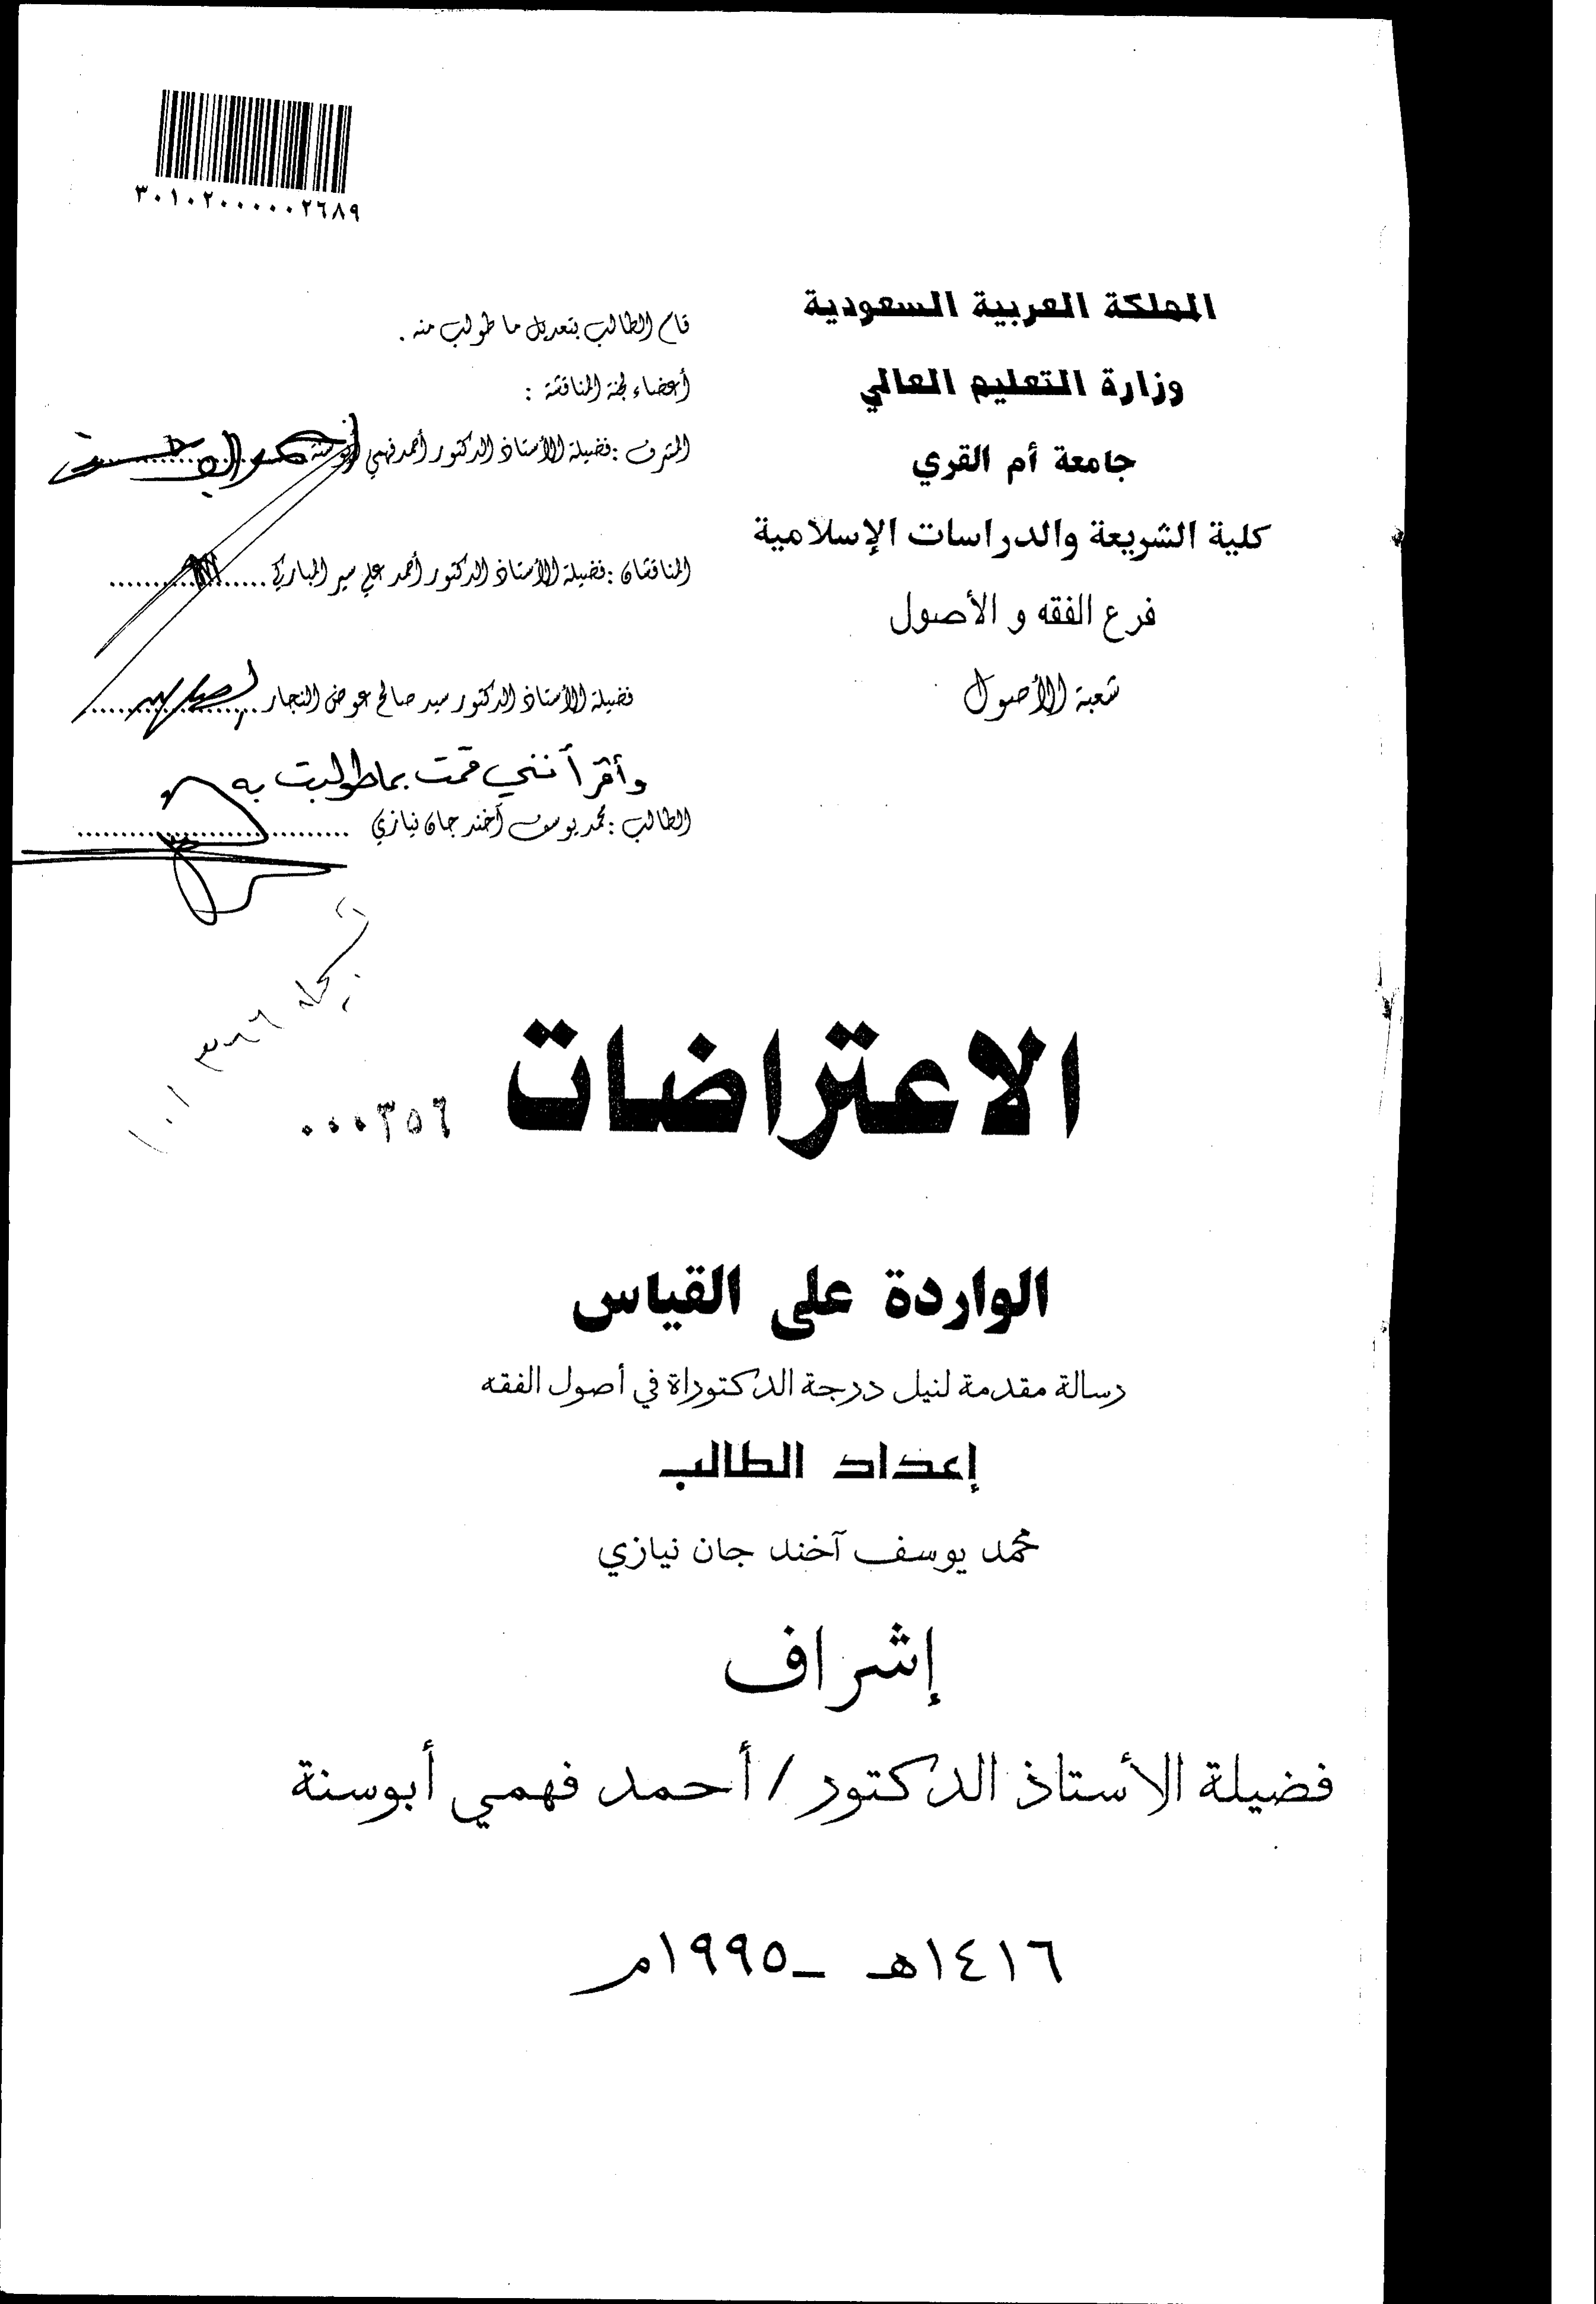 ٣٠١٠٢٠٠٠٠٠٢٦٨٩
المملكة العربية السعودية
وزارة التعليم العالي
جامعة أم القري
كلية الشريعة والدراسات الإسلامية
فرع الفقه و الأصول
شعبة الأصول
قام الطالب بتعديل ما طولب منه .
أعضاء لجنة المناقشة :
المشرف : فضيلة الأستاذ الدكتور أحمد فهمي أبوسنة
المناقشان : فضيلة الأستاذ الدكتور أحمد علي سير المباركي
فضيلة الأستاذ الدكتور سيد صالح عوض النجار
وأقر أنني قمت بما طولبت به
الطالب : محمد يوسف آخند جان نيازي
الاعتراضات
٠٠٠٣٥٦
الواردة على القياس
رسالة مقدمة لنيل درجة الدكتوراة في أصول الفقه
إعداد الطالب
محمد يوسف آخند جان نيازي
إشراف
فضيلة الأستاذ الدكتور / أحمد فهمي أبوسنة
١٤١٦هـ _١٩٩٥م